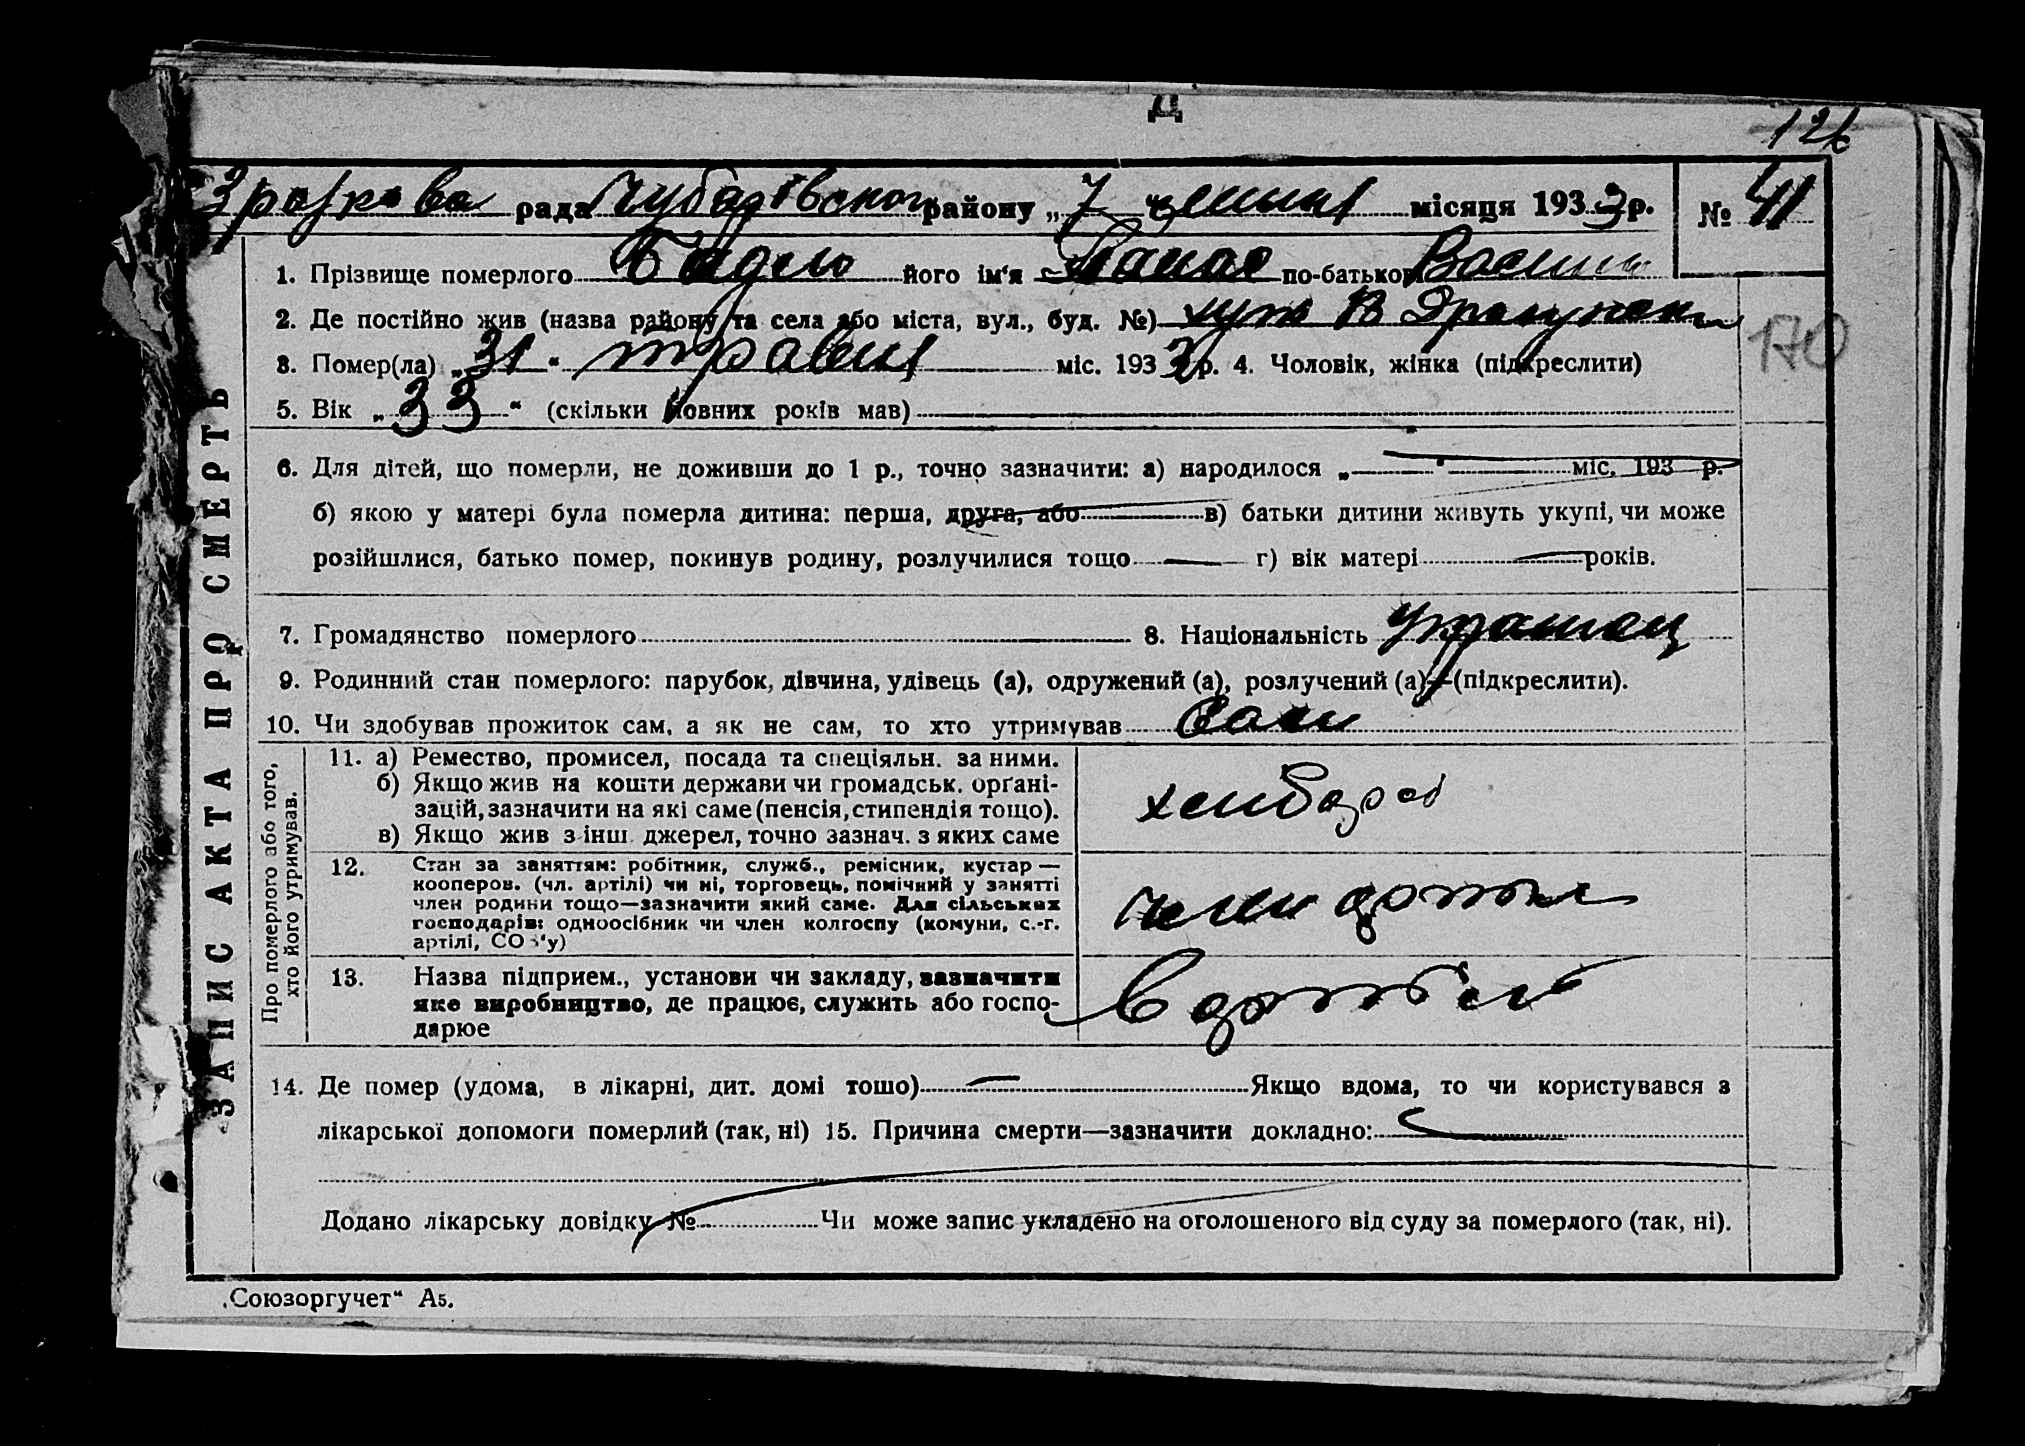 Д
126
рада Чубарівського району „7 червня місяця 1933 р. № 41
1. Прізвище померлого його ім'я Панас по-батькові Васил
2. Де постійно жив (назва району та села або міста, вул., буд. №) хут В
170
3. Помер(ла) „31“ травня міс. 1933 р. 4. Чоловік, жінка (підкреслити)
5. Вік „33“ (скільки повних років мав)
6. Для дітей, що померли, не доживши до 1 р., точно зазначити: а) народилося „ “ міс. 193 р.
б) якою у матері була померла дитина: перша, друга, або в) батьки дитини живуть укупі, чи може
розійшлися, батько помер, покинув родину, розлучилися тощо г) вік матері років.
7. Громадянство померлого 8. Національність українец
9. Родинний стан померлого: парубок, дівчина, удівець (а), одружений (а), розлучений (а)—(підкреслити).
10. Чи здобував прожиток сам, а як не сам, то хто утримував Сам
ЗАПИС АКТА ПРО СМЕРТЬ
Про померлого або того,
хто його утримував.
11. а) Ремество, промисел, посада та спеціяльн. за ними.
б) Якщо жив на кошти держави чи громадськ. орґані-
зацій, зазначити на які саме (пенсія, стипендія тощо).
в) Якщо жив з інш. джерел, точно зазнач. з яких саме
хлибороб
12. Стан за заняттям: робітник, служб., ремісник, кустар —
кооперов. (чл. артілі) чи ні, торговець, помічний у занятті
член родини тощо—зазначити який саме. Для сільських
господарів: одноосібник чи член колгоспу (комуни, с.-г.
артілі, СО З'у)
член артіли
13. Назва підприєм., установи чи закладу, зазначити
яке виробництво, де працює, служить або госпо-
дарює
В артіли
14. Де помер (удома, в лікарні, дит. домі тощо) Якщо вдома, то чи користувався з
лікарської допомоги померлий (так, ні) 15. Причина смерти—зазначити докладно:
Додано лікарську довідку № Чи може запис укладено на оголошеного від суду за померлого (так, ні).
„Союзоргучет“ А5.